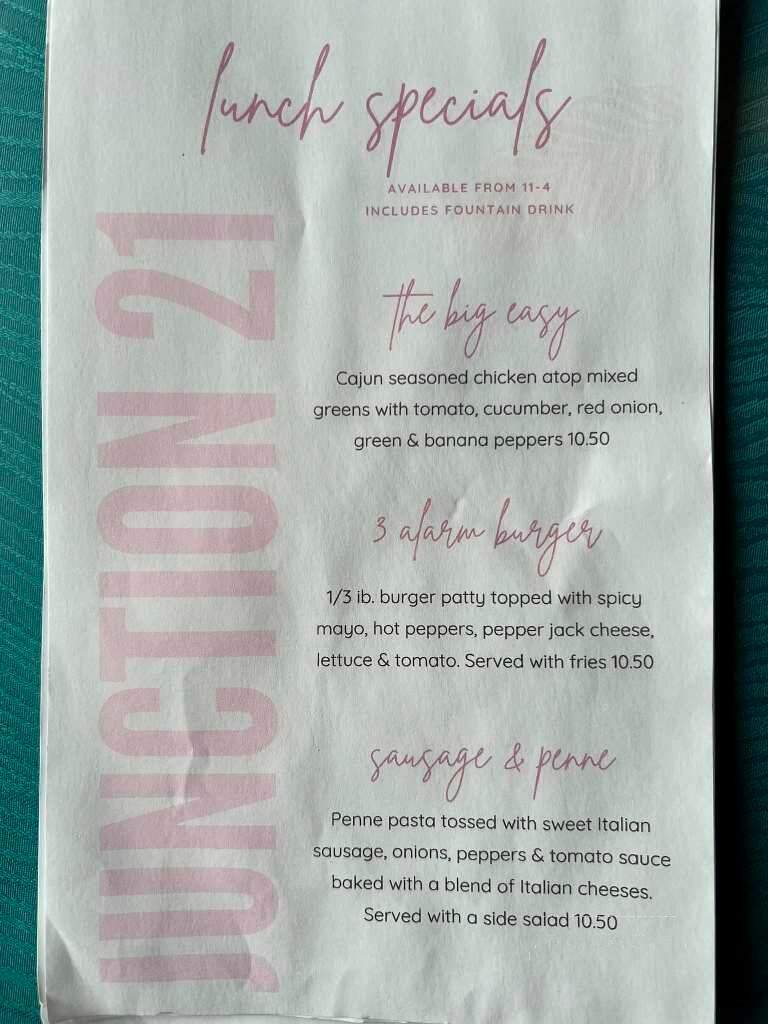 lunch specials
AVAILABLE FROM 11-4
INCLUDES FOUNTAIN DRINK
JUNCTION 21
the big easy
Cajun seasoned chicken atop mixed
greens with tomato, cucumber, red onion,
green & banana peppers 10.50
3 alarm burger
1/3 ib. burger patty topped with spicy
mayo, hot peppers, pepper jack cheese,
lettuce & tomato. Served with fries 10.50
sausage & penne
Penne pasta tossed with sweet Italian
sausage, onions, peppers & tomato sauce
baked with a blend of Italian cheeses.
Served with a side salad 10.50